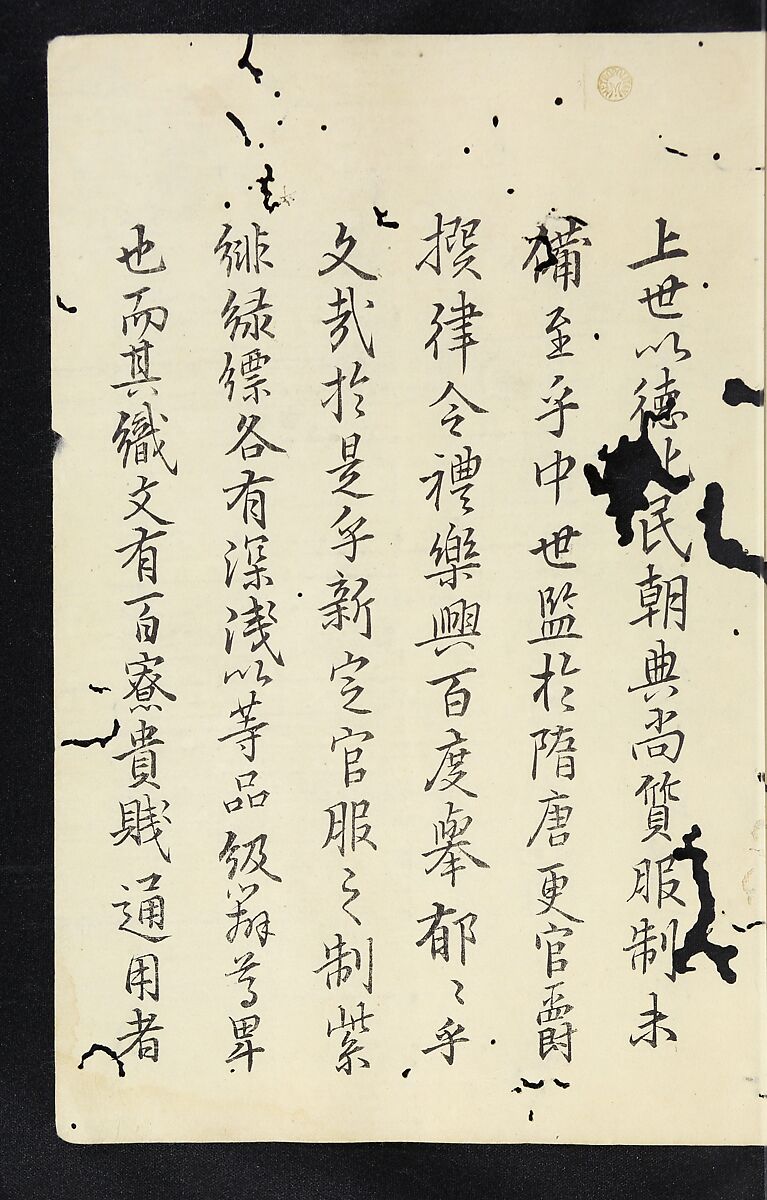 上世以德化民朝典尚質服制未
備至乎中世監於隋唐更官爵
撰律令禮樂興百度舉郁〻乎
文哉於是乎新定官服之制紫
緋緑縹各有深浅以等品級辨尊卑
也而其織文有百寮貴賎通用者